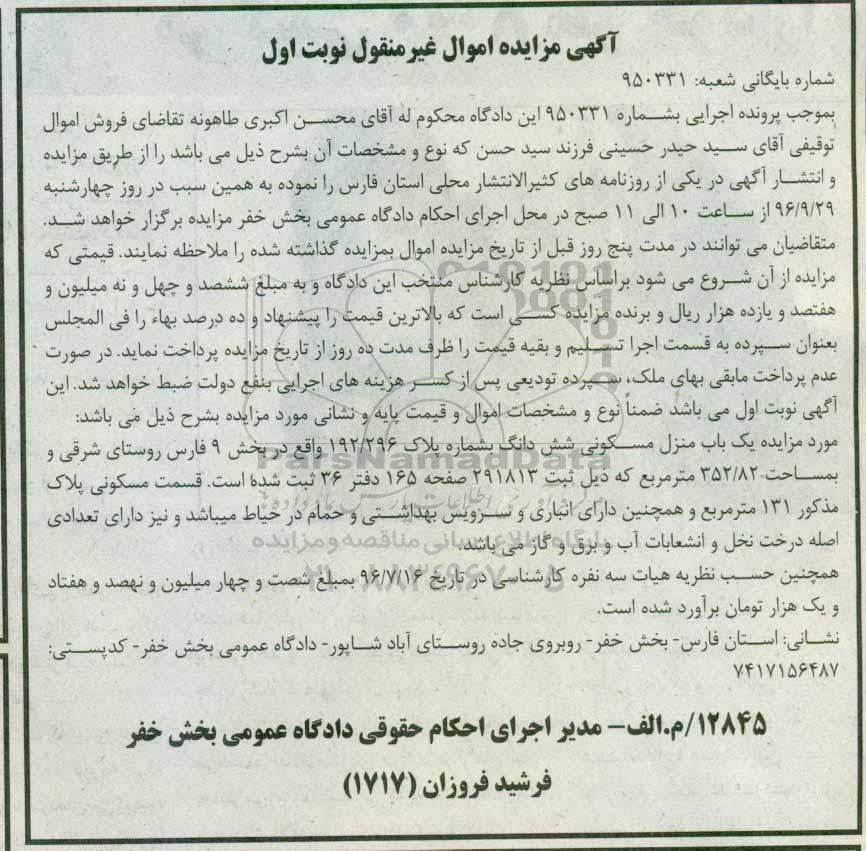 آگهی مزایده اموال غیرمنقول نوبت اول
شماره بایگانی شعبه: ۹۵۰۳۳۱
بموجب پرونده اجرایی بشماره ۹۵۰۳۳۱ این دادگاه محکوم له آقای محسن اکبری طاهونه تقاضای فروش اموال
توقیفی آقای سید حیدر حسینی فرزند سید حسن که نوع و مشخصات آن بشرح ذیل می باشد را از طریق مزایده
و انتشار آگهی در یکی از روزنامه های کثیرالانتشار محلی استان فارس را نموده به همین سبب در روز چهارشنبه
۹۶/۹/۲۹ از ساعت ۱۰ الی ۱۱ صبح در محل اجرای احکام دادگاه عمومی بخش خفر مزایده برگزار خواهد شد.
متقاضیان می توانند در مدت پنج روز قبل از تاریخ مزایده اموال بمزایده گذاشته شده را ملاحظه نمایند. قیمتی که
مزایده از آن شروع می شود براساس نظریه کارشناس منتخب این دادگاه و به مبلغ ششصد و چهل و نه میلیون و
هفتصد و یازده هزار ریال و برنده مزایده کسی است که بالاترین قیمت را پیشنهاد و ده درصد بهاء را فی المجلس
بعنوان سپرده به قسمت اجرا تسلیم و بقیه قیمت را ظرف مدت ده روز از تاریخ مزایده پرداخت نماید. در صورت
عدم پرداخت مابقی بهای ملک، سپرده تودیعی پس از کسر هزینه های اجرایی بنفع دولت ضبط خواهد شد. این
آگهی نوبت اول می باشد ضمناً نوع و مشخصات اموال و قیمت پایه و نشانی مورد مزایده بشرح ذیل می باشد:
مورد مزایده یک باب منزل مسکونی شش دانگ بشماره پلاک ۱۹۲/۲۹۶ واقع در بخش ۹ فارس روستای شرقی و
بمساحت ۳۵۲/۸۲ مترمربع که ذیل ثبت ۲۹۱۸۱۳ صفحه ۱۶۵ دفتر ۳۶ ثبت شده است. قسمت مسکونی پلاک
مذکور ۱۳۱ مترمربع و همچنین دارای انباری و سرویس بهداشتی و حمام در حیاط میباشد و نیز دارای تعدادی
اصله درخت نخل و انشعابات آب و برق و گاز می باشد.
همچنین حسب نظریه هیات سه نفره کارشناسی در تاریخ ۹۶/۷/۱۶ بمبلغ شصت و چهار میلیون و نهصد و هفتاد
و یک هزار تومان برآورد شده است.
نشانی: استان فارس- بخش خفر- روبروی جاده روستای آباد شاپور- دادگاه عمومی بخش خفر- کدپستی:
۷۴۱۷۱۵۶۴۸۷
۱۲۸۴۵/م.الف- مدیر اجرای احکام حقوقی دادگاه عمومی بخش خفر
فرشید فروزان (۱۷۱۷)
ParsNamadData
پایگاه اطلاع رسانی مناقصه و مزایده